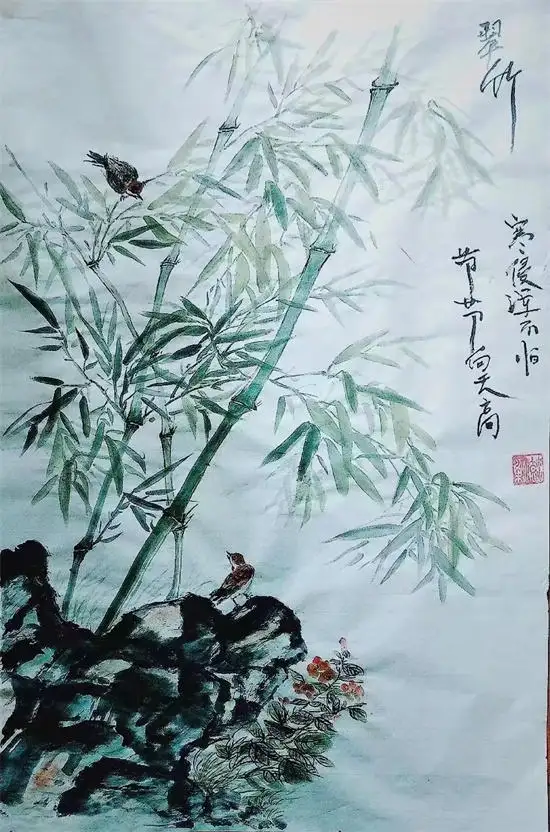 翠竹
寒侵浑不怕
节节向天高